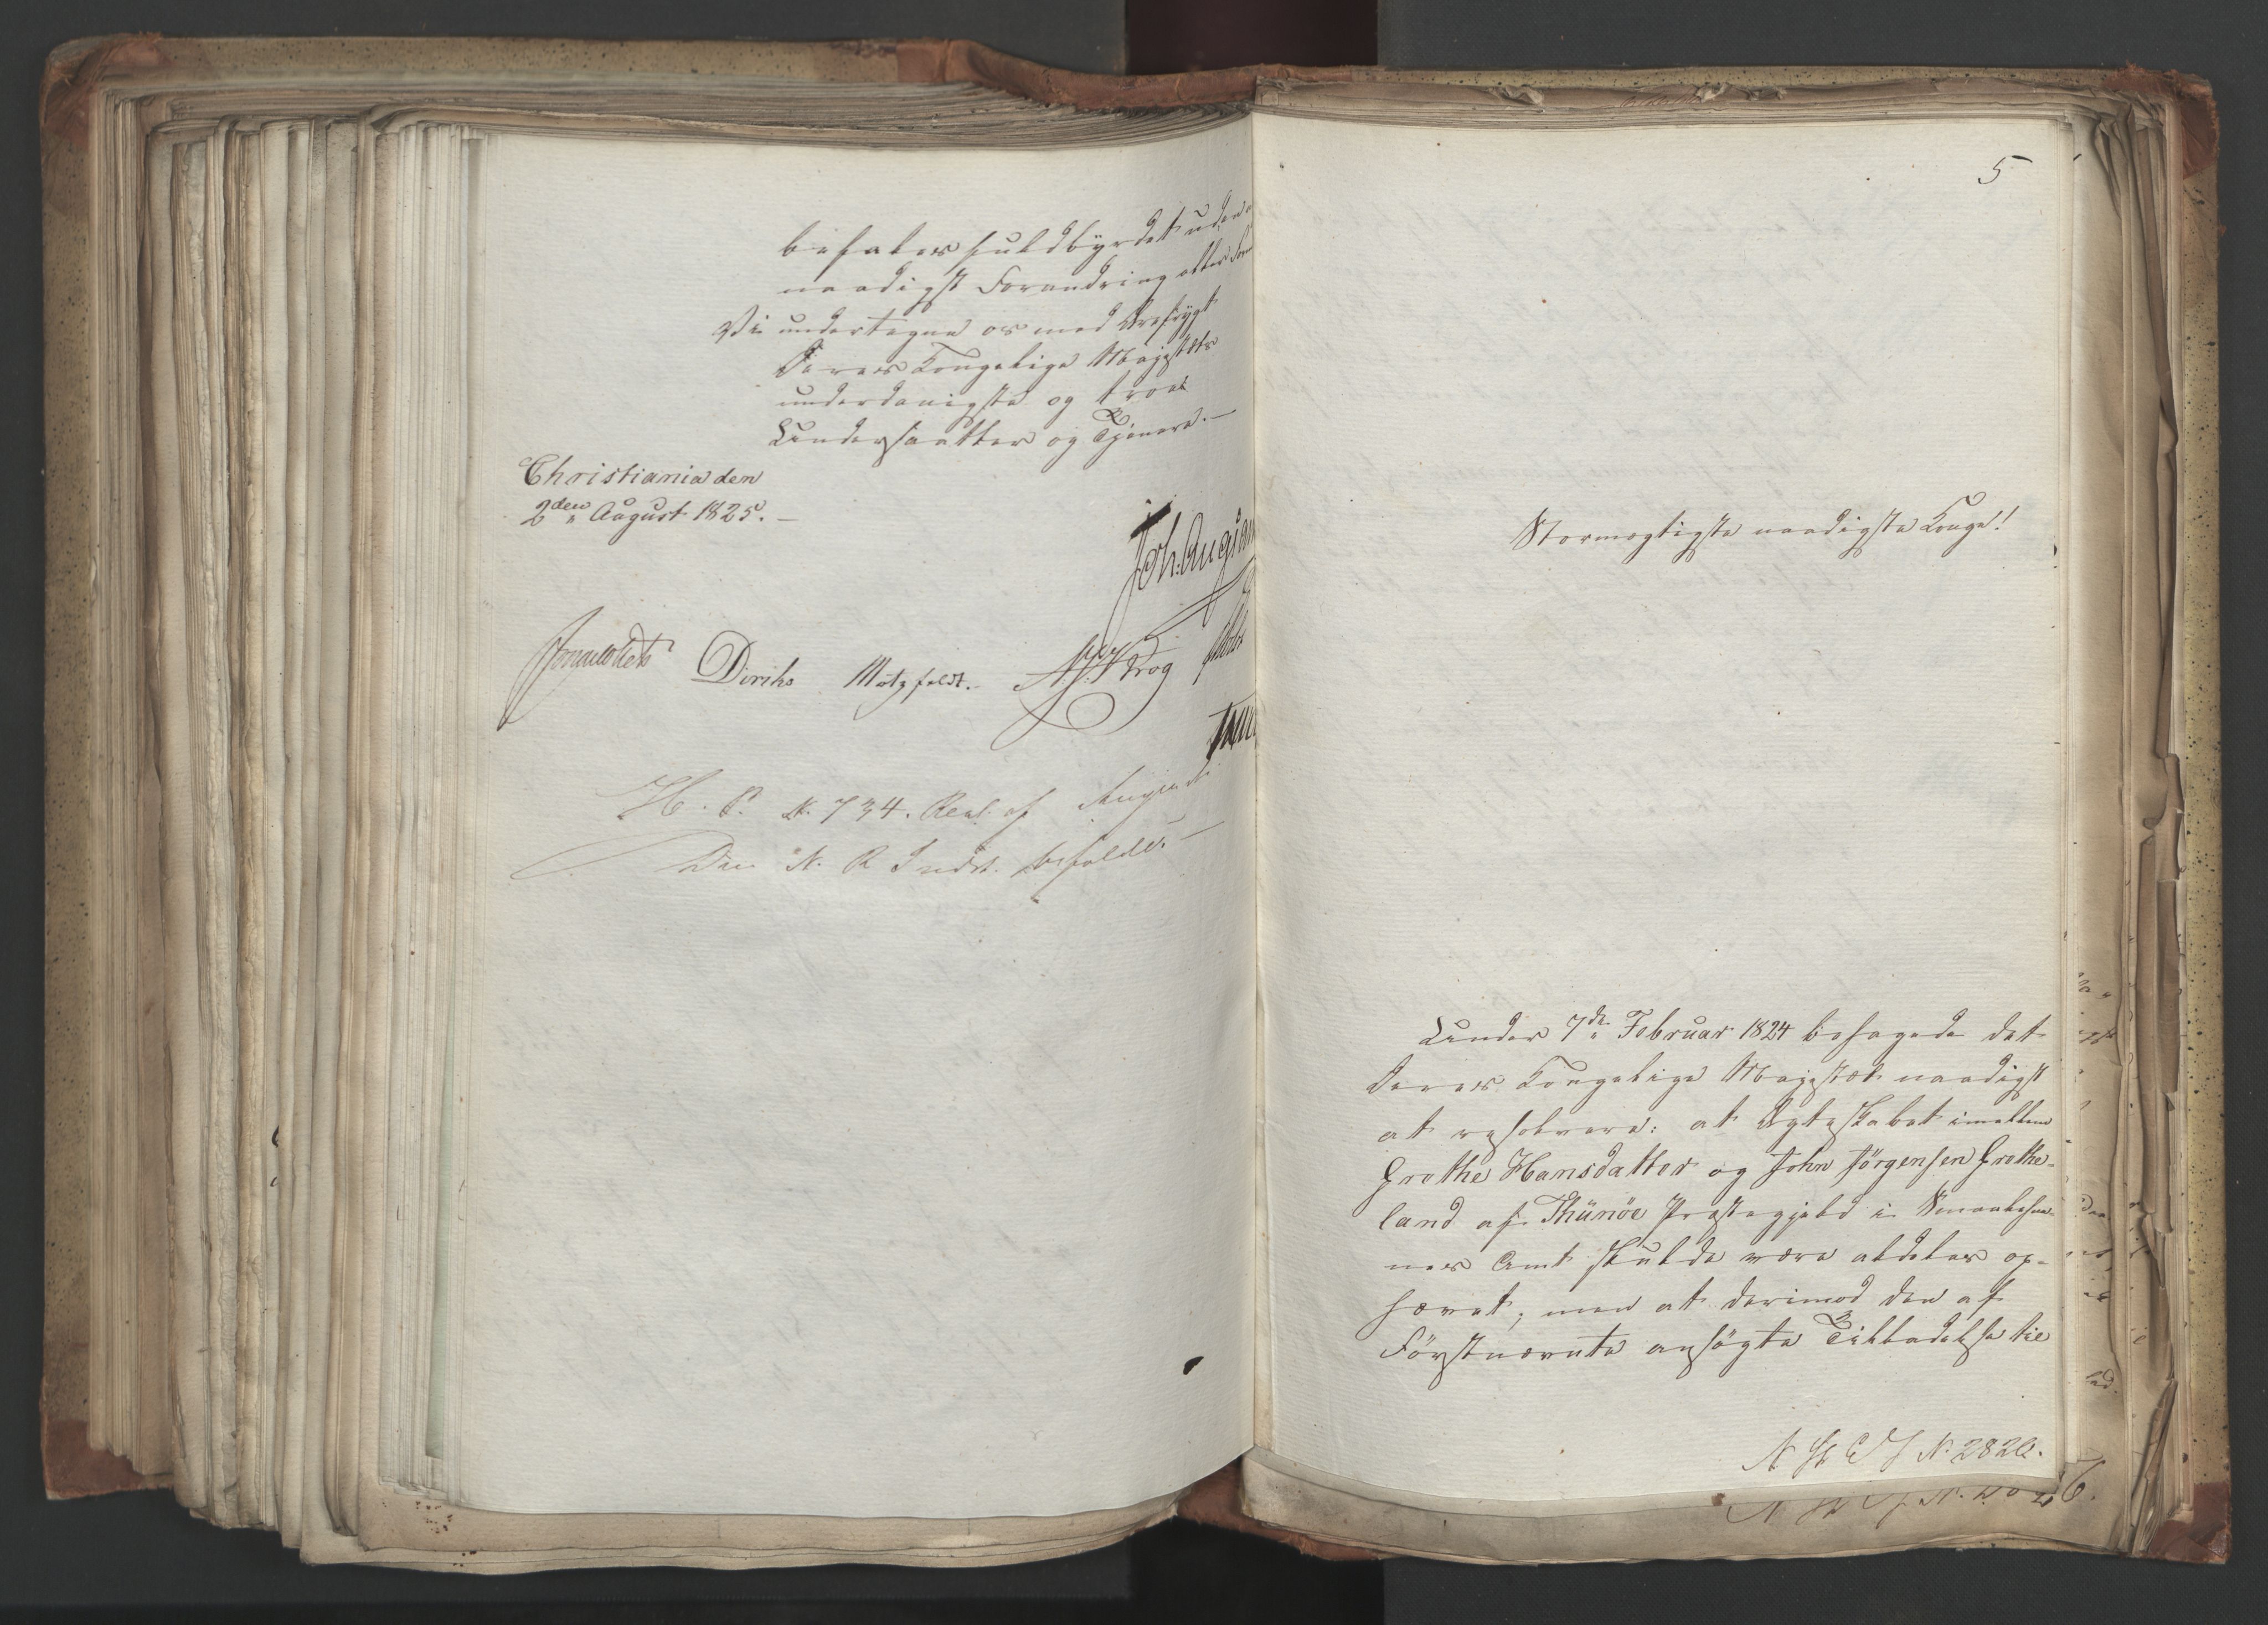 befales fuldbyrdet uden
naadigst Forandring eller
Vi undertegne os med Ærefrygt
Deres Kongelige Majestæts
underdanigste og troe
Undersaatter og Tjenere.—
Christiania den
2den August 1825.—
Diriks Motzfeldt. Krog
H. S. N. 734. Resl. af
Den N. R. Indst. bifaldes—
5
Stormægtigste naadigste Konge!
Under 7de Februar 1824 behagede det
Deres Kongelige Majestæt naadigst
at resolvere: at Ægteskabet imellem
Grethe Hansdatter og John Jörgensen Grothe-
land af Thünöe Præstegjeld i Smaalehne-
nes Amt skulde være aldeles op-
hævet; men at derimod den af
Förstnævnte ansögte Tilladelse til
N. 2826.